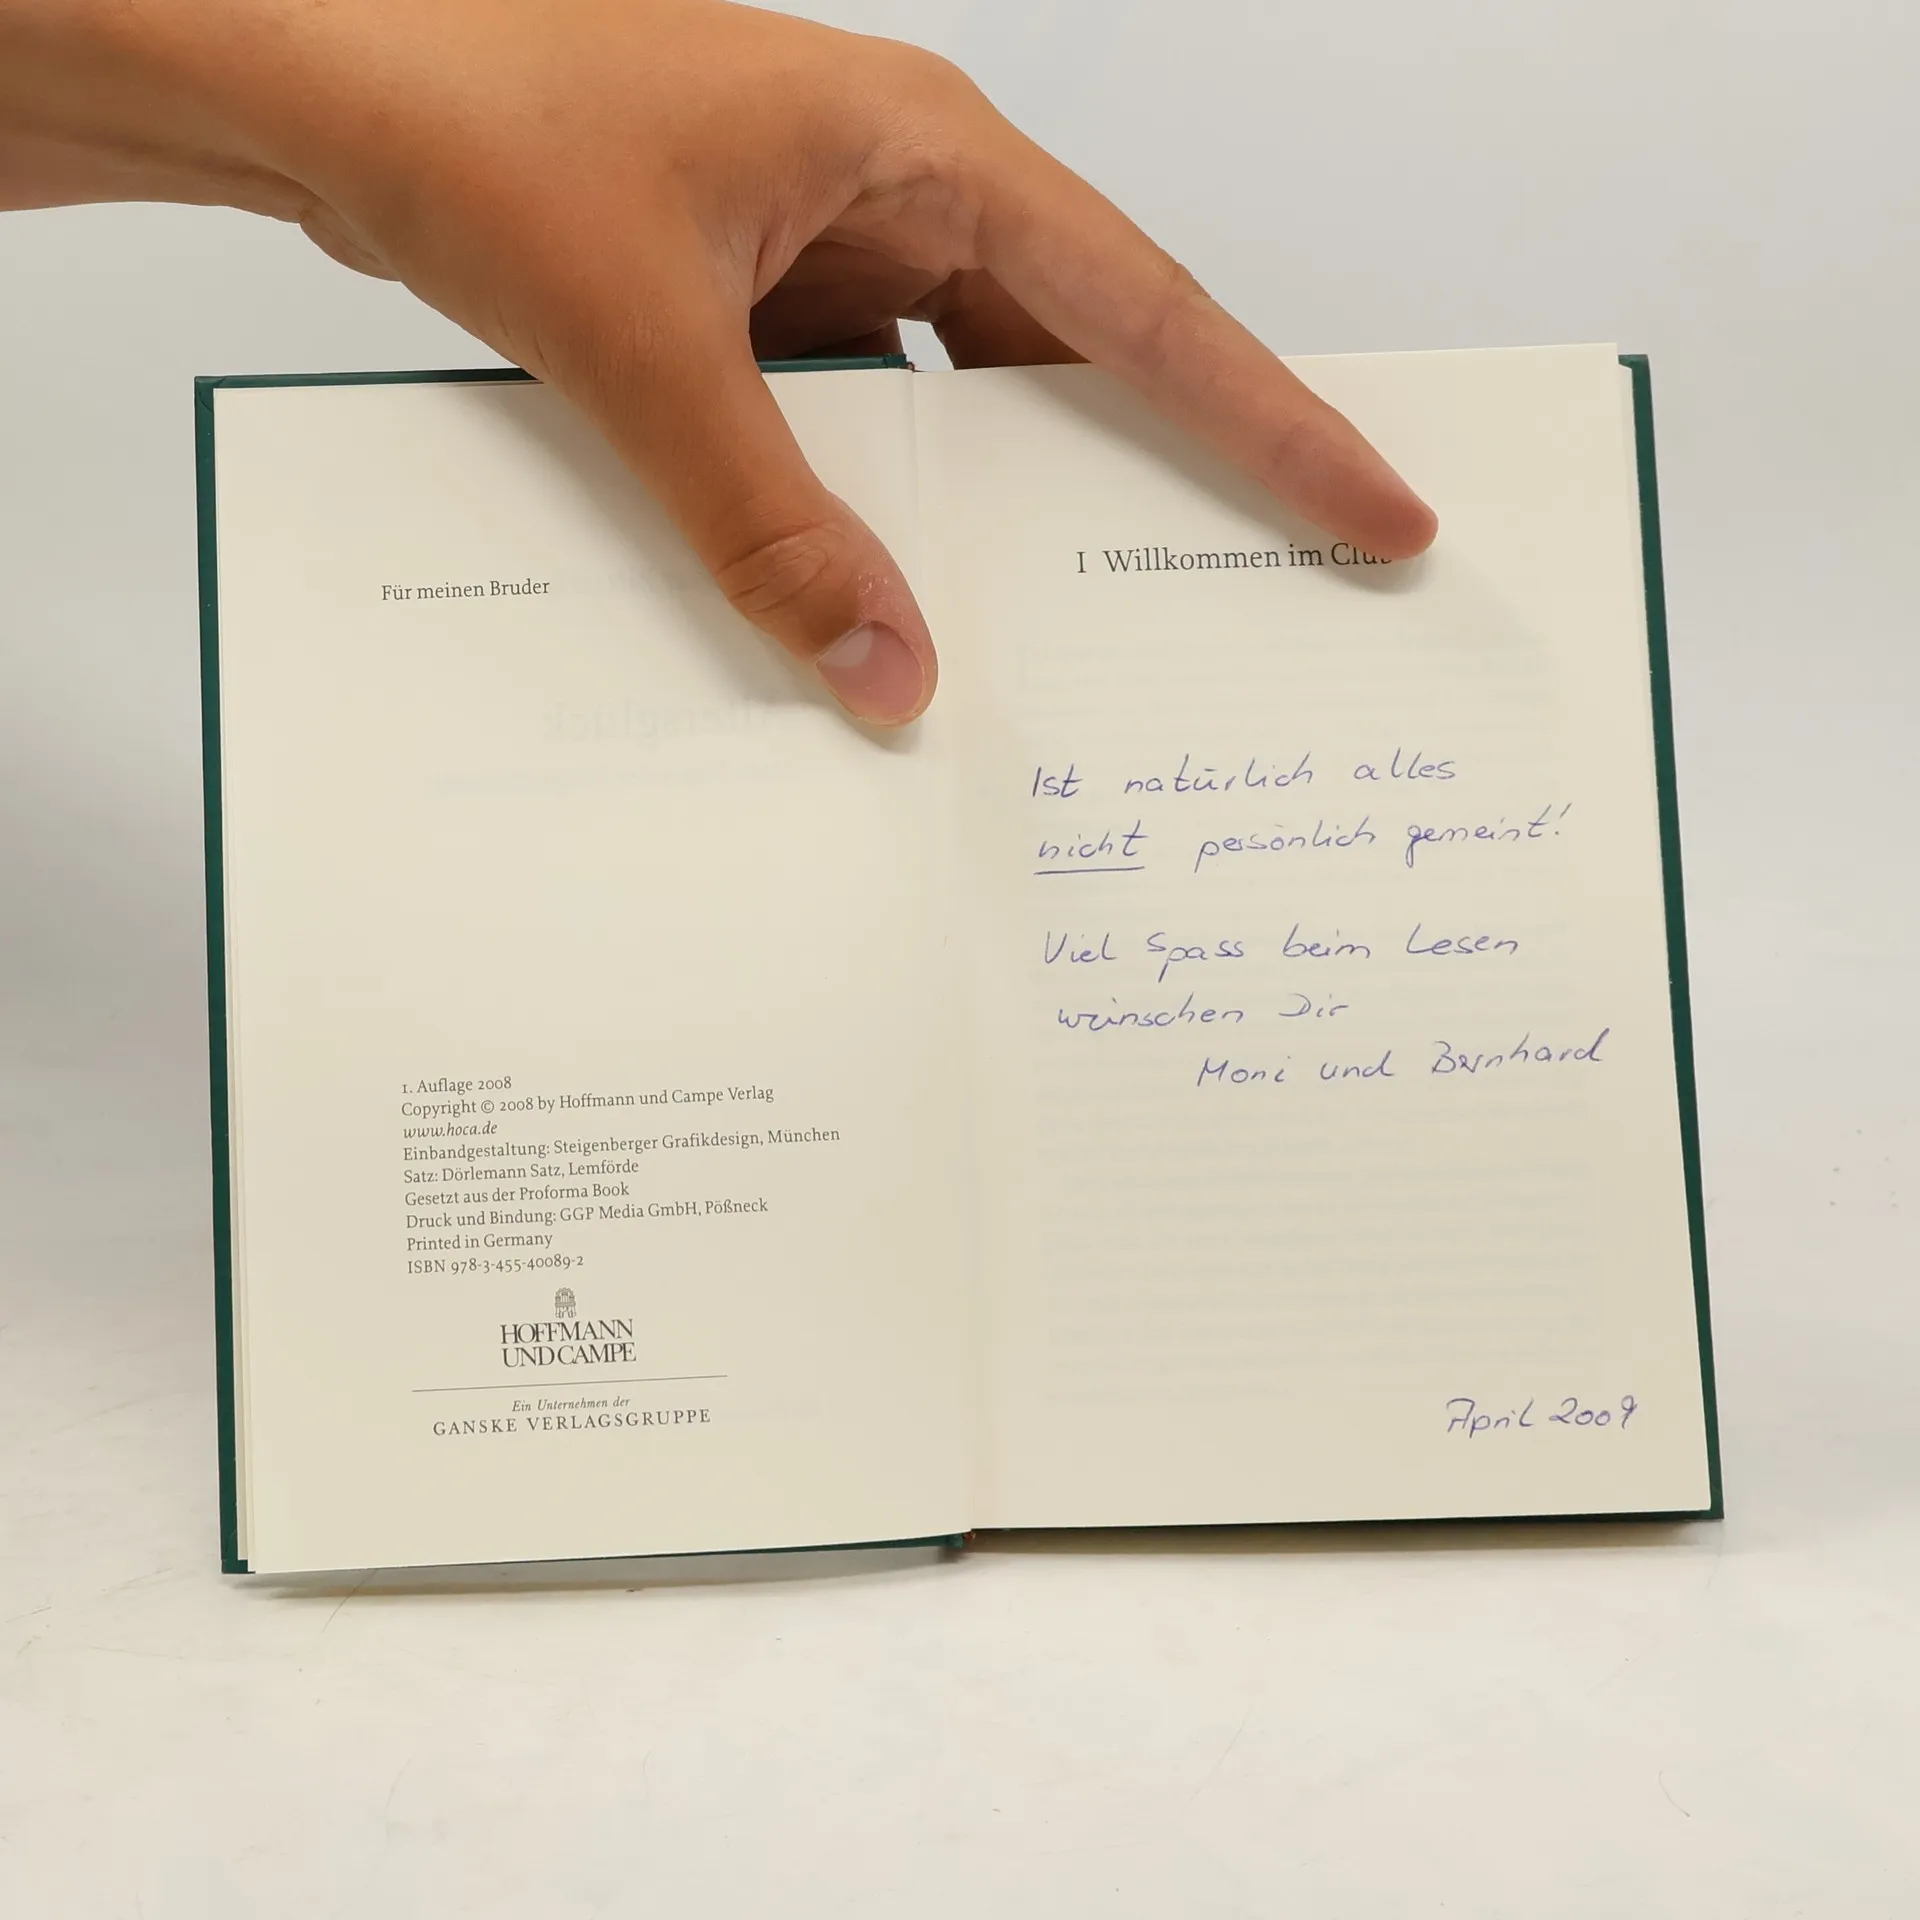 Für meinen Bruder
1. Auflage 2008
Copyright © 2008 by Hoffmann und Campe Verlag
www.hoca.de
Einbandgestaltung: Steigenberger Grafikdesign, München
Satz: Dörlemann Satz, Lemförde
Gesetzt aus der Proforma Book
Druck und Bindung: GGP Media GmbH, Pößneck
Printed in Germany
ISBN 978-3-455-40089-2
HOFFMANN
UND CAMPE
Ein Unternehmen der
GANSKE VERLAGSGRUPPE
I Willkommen im Club
Ist natürlich alles
nicht persönlich gemeint!
Viel Spass beim Lesen
wünschen Dir
Moni und Bernhard
April 2009